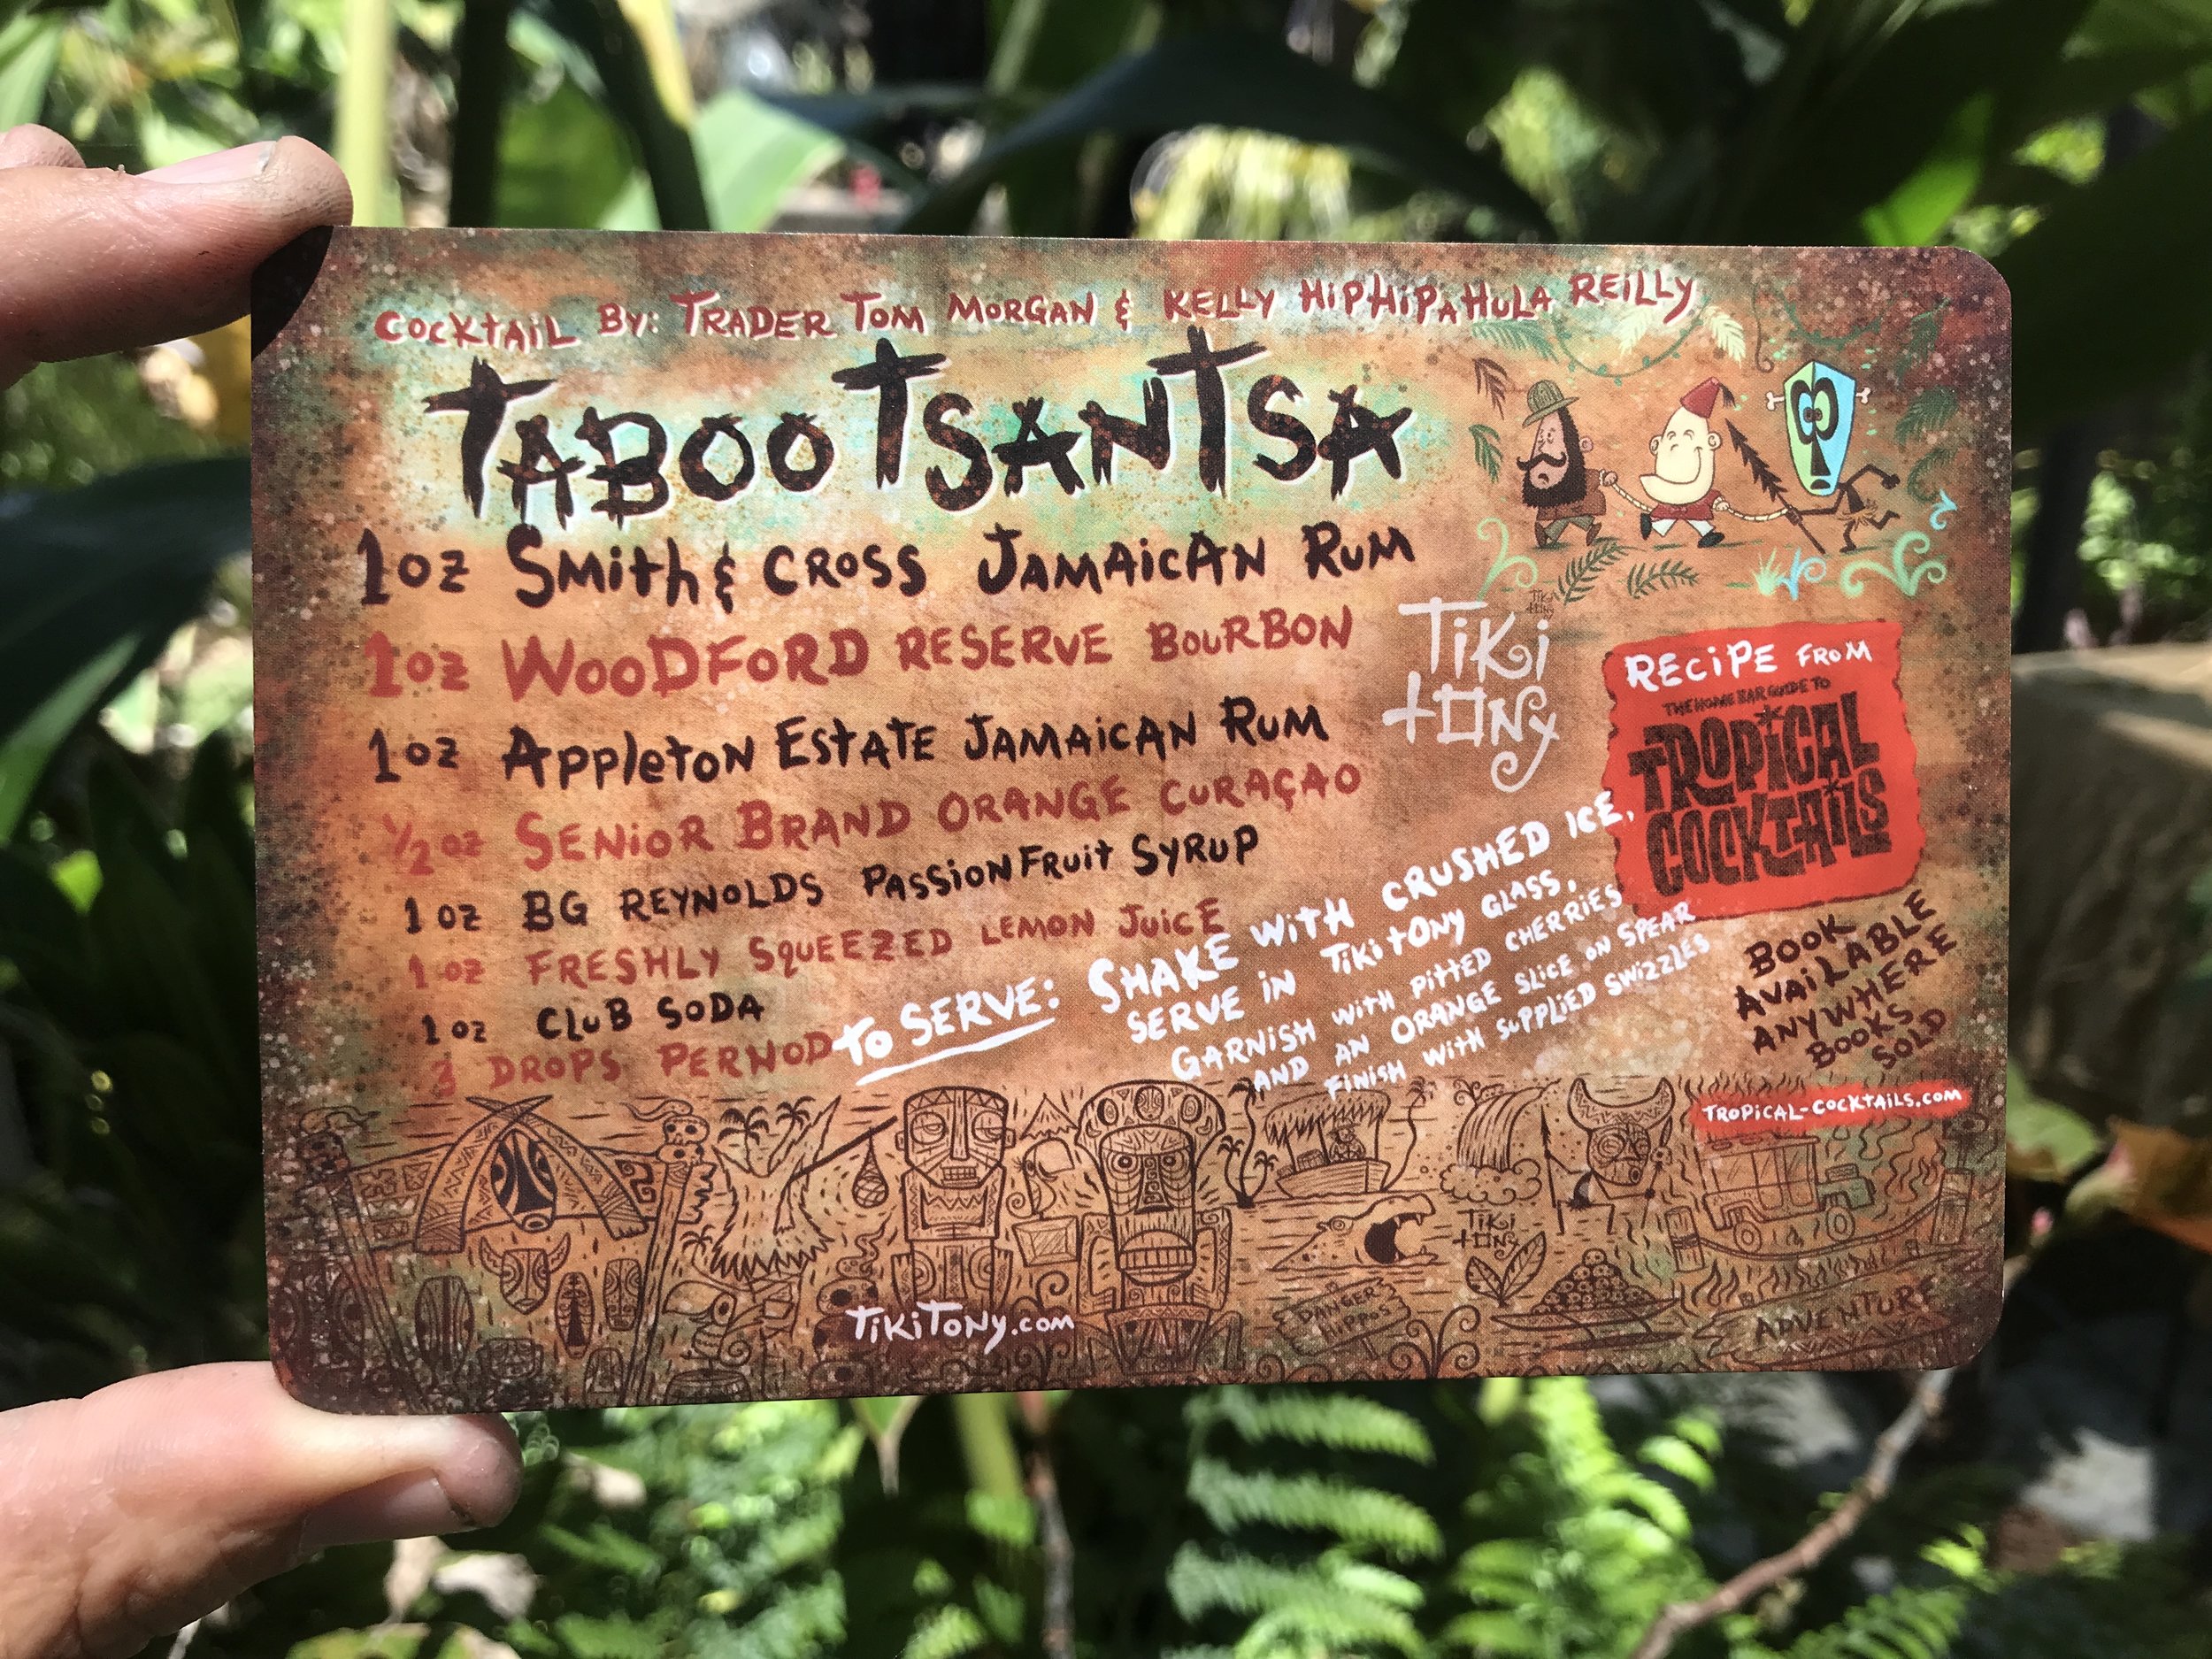 COCKTAIL BY: TRADER TOM MORGAN & KELLY HIPHIPAHULA REILLY
TABOO TSANTSA
1 OZ SMITH & CROSS JAMAICAN RUM
1 OZ WOODFORD RESERVE BOURBON
1 OZ APPLETON ESTATE JAMAICAN RUM
1/2 OZ SENIOR BRAND ORANGE CURAÇAO
1 OZ BG REYNOLDS PASSIONFRUIT SYRUP
1 OZ FRESHLY SQUEEZED LEMON JUICE
1 OZ CLUB SODA
3 DROPS PERNOD
TO SERVE: SHAKE WITH CRUSHED ICE,
SERVE IN TIKI TONY GLASS,
GARNISH WITH PITTED CHERRIES
AND AN ORANGE SLICE ON SPEAR
FINISH WITH SUPPLIED SWIZZLES
TIKI
TONY
TIKI
TONY
RECIPE FROM
THE HOME BAR GUIDE TO
TROPICAL
COCKTAILS
BOOK
AVAILABLE
ANYWHERE
BOOKS
SOLD
TROPICAL-COCKTAILS.COM
TIKI
TONY
DANGER
HIPPOS
ADVENTURE
TIKITONY.COM